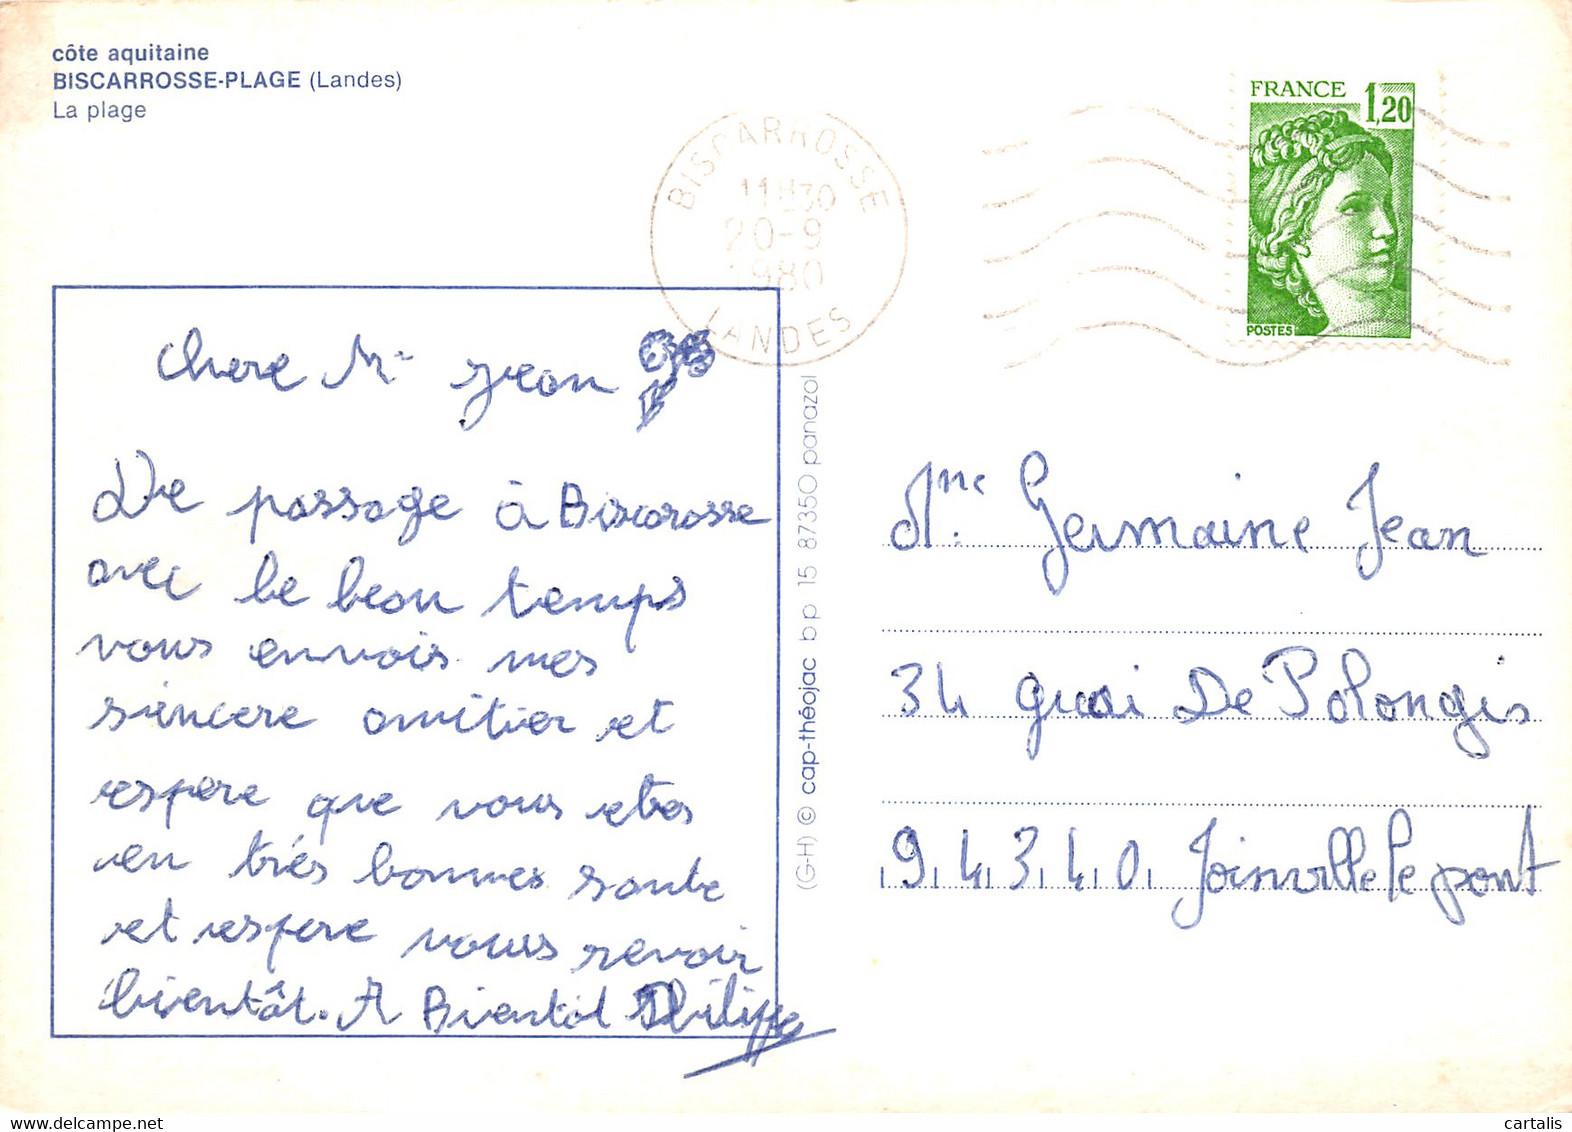 côte aquitaine
BISCARROSSE-PLAGE (Landes)
La plage
BISCARROSSE
11H30
20-9
1980
LANDES
FRANCE 1,20
POSTES
Chere Me Jean
De passage à Biscarosse
avec le beau temps
vous envois mes
sincere amitier et
espere que vous etes
en trés bonnes sante
et espere vous revoir
bientôt. A Bientôt Philippe
(G-H) © cap-théojac bp 15 87350 panazol
Mme Germaine Jean
34 quai De Polongis
94340 Joinville le pont
delcampe.net
cartalis